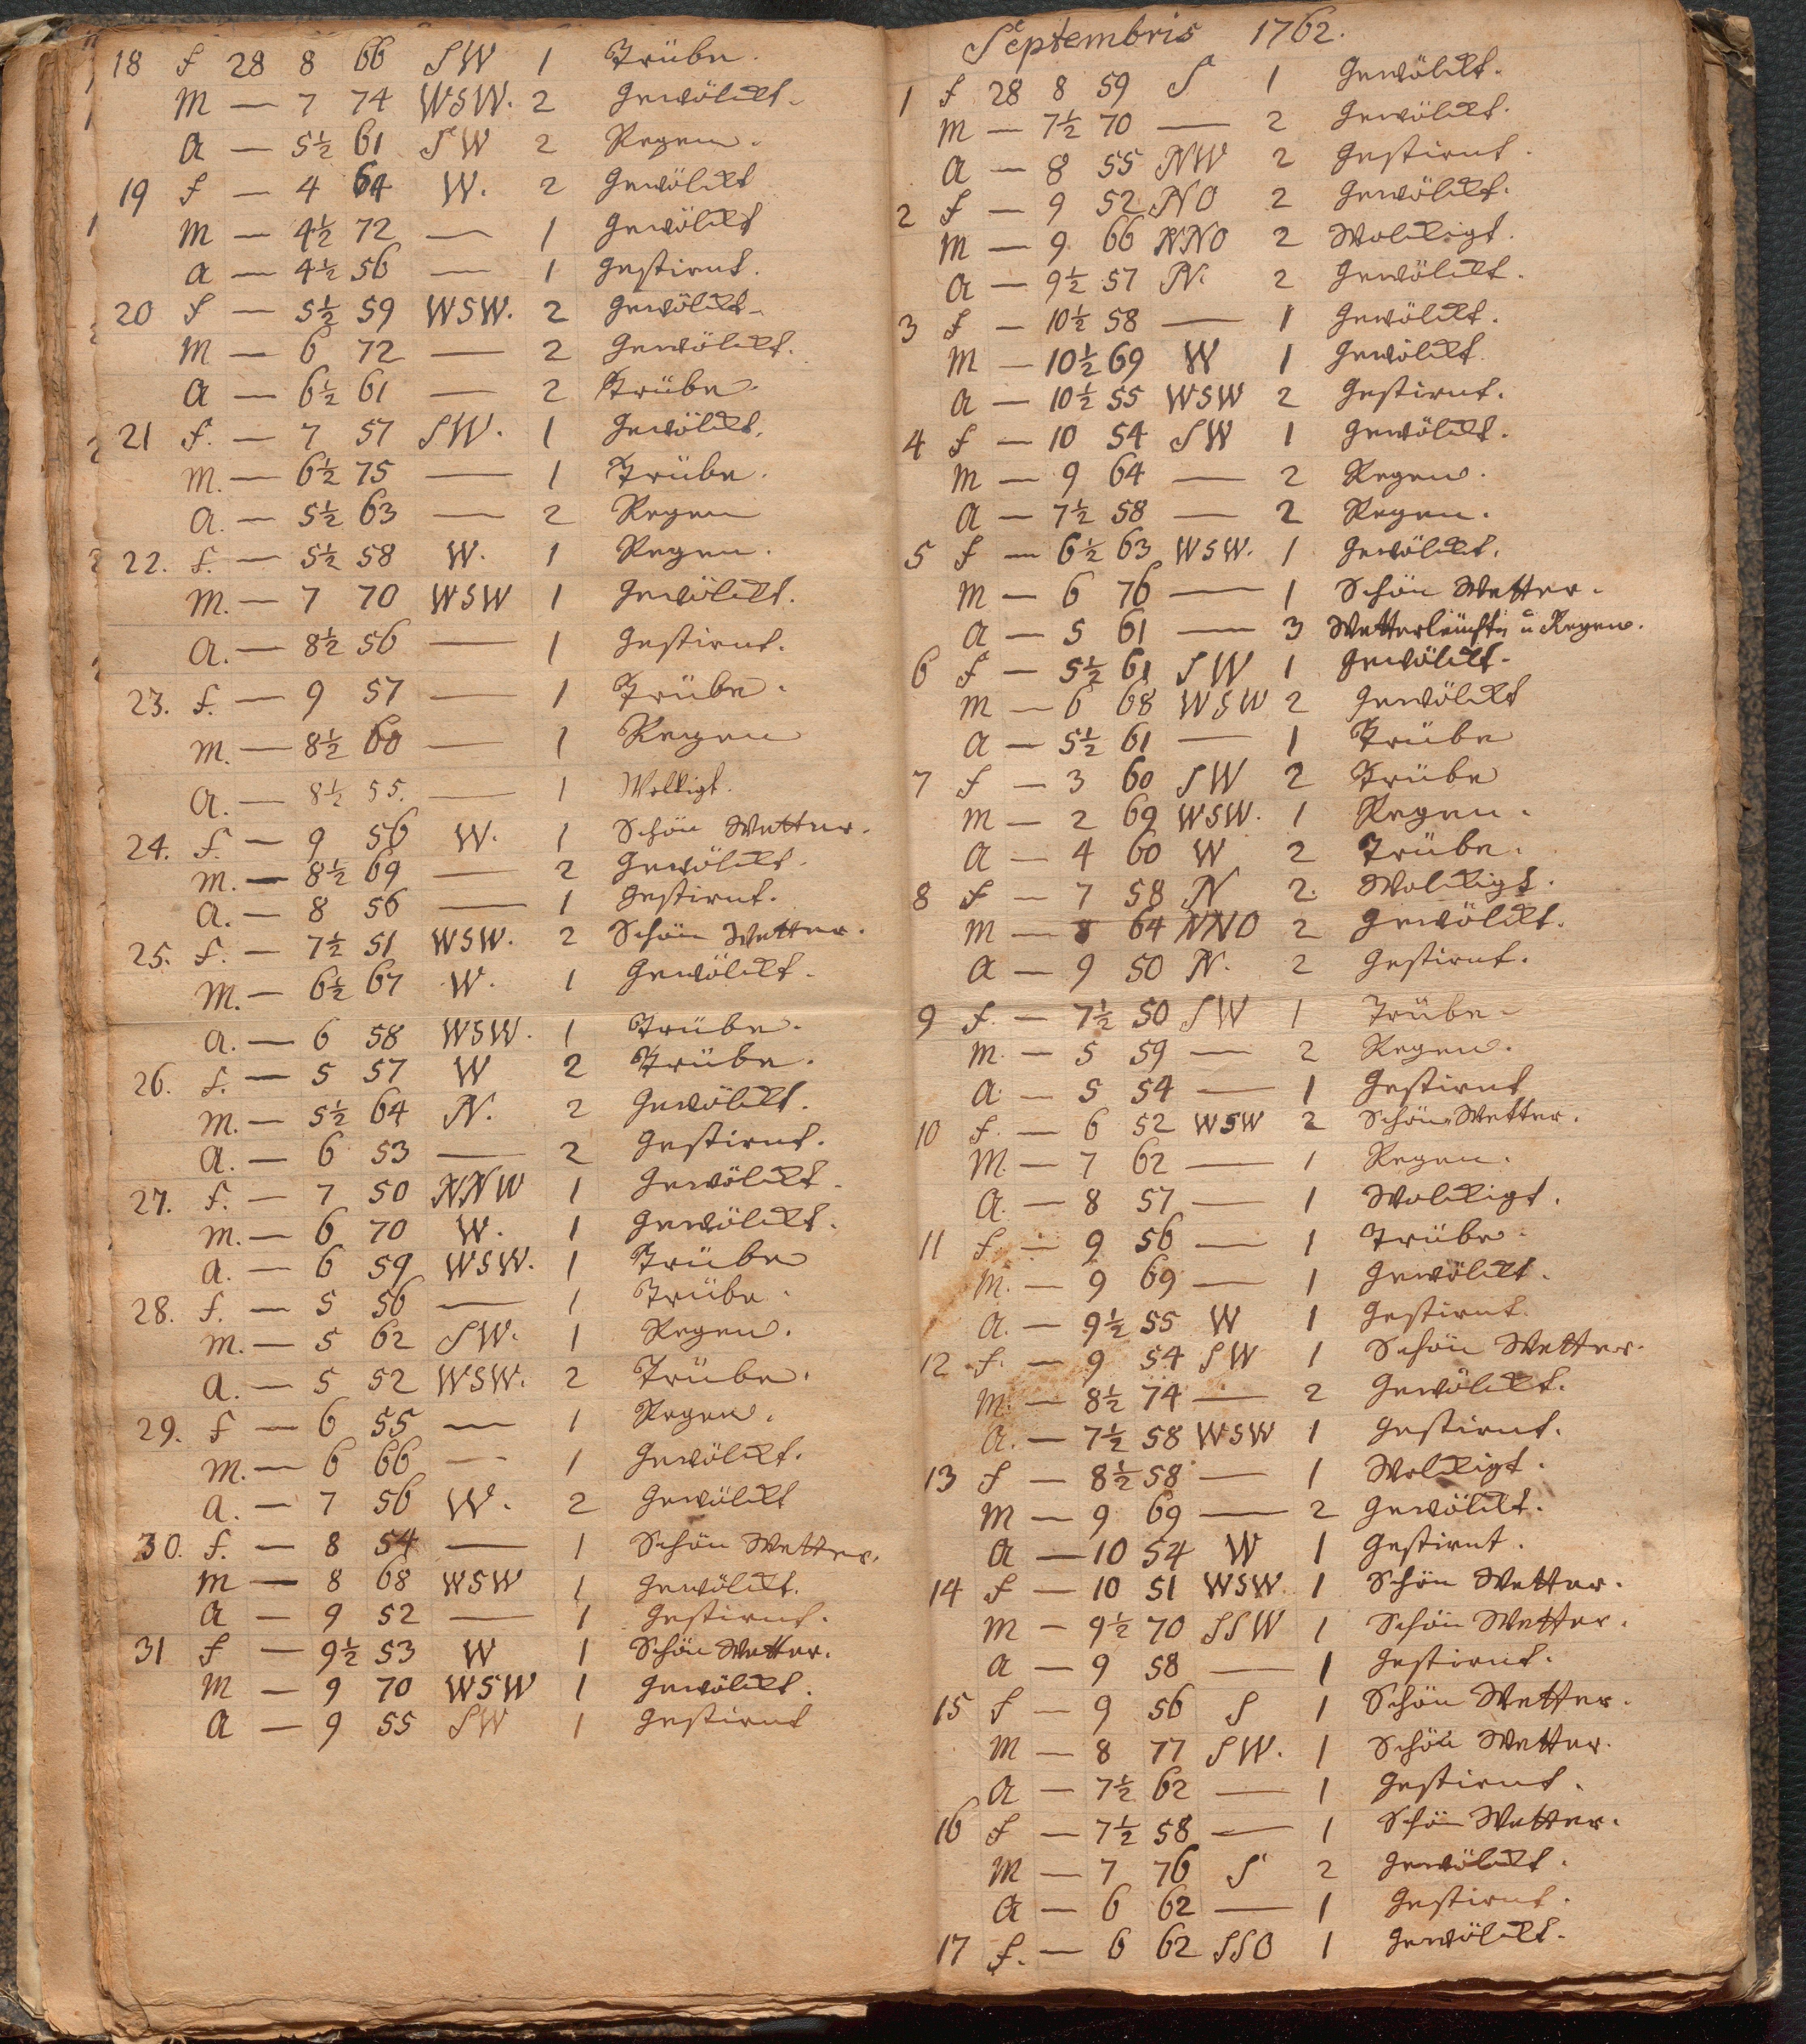 18 f 28 8 66 SW 1 Trübe.
M — 7 74 WSW. 2 Gewölckt.
a — 5½ 61 SW 2 Regen.
19 f — 4 64 W. 2 Gewölckt
M — 4½ 72 — 1 Gewölckt
a — 4½ 56 — 1 Gestirnt.
20 f — 5½ 59 WSW. 2 Gewölckt.
M — 6 72 — 2 Gewölckt.
a — 6½ 61 — 2 Trübe.
21 f. — 7 57 SW. 1 Gewölckt.
M. — 6½ 75 — 1 Trübe.
a. — 5½ 63 — 2 Regen
22. f. — 5½ 58 W. 1 Regen.
M. — 7 70 WSW 1 Gewölckt.
a. — 8½ 56 — 1 Gestirnt.
23. f. — 9 57 — 1 Trübe.
M. — 8½ 60 — 1 Regen
a. — 8½ 55. — 1 Wolkigt.
24. f. — 9 56 W. 1 Schön Wetter.
M. — 8½ 69 — 2 Gewölckt.
a. — 8 56 — 1 Gestirnt.
25. f. — 7½ 51 WSW. 2 Schön Wetter.
M. — 6½ 67 W. 1 Gewölckt.
a. — 6 58 WSW. 1 Trübe.
26. f. — 5 57 W 2 Trübe.
M. — 5½ 64 N. 2 Gewölckt.
a. — 6 53 — 2 Gestirnt.
27. f. — 7 50 NNW 1 Gewölckt.
M. — 6 70 W. 1 Gewölckt.
a. — 6 59 WSW. 1 Trübe
28. f. — 5 56 — 1 Trübe.
M. — 5 62 SW. 1 Regen.
a. — 5 52 WSW. 2 Trübe.
29. f — 6 55 — 1 Regen.
M. — 6 66 — 1 Gewölckt.
a. — 7 56 W. 2 Gewölckt
30. f. — 8 54 — 1 Schön Wetter.
M — 8 68 WSW 1 Gewölckt.
a — 9 52 — 1 Gestirnt.
31 f — 9½ 53 W 1 Schön Wetter.
M — 9 70 WSW 1 Gewölckt.
a — 9 55 SW 1 Gestirnt
Septembris 1762.
1 f 28 8 59 S 1 Gewölckt.
M — 7½ 70 — 2 Gewölckt.
a — 8 55 NW 2 Gestirnt.
2 f — 9 52 NO 2 Gewölckt.
M — 9 66 NNO 2 Wolckigt.
a — 9½ 57 N. 2 Gewölckt.
3 f — 10½ 58 — 1 Gewölckt.
M — 10½ 69 W 1 Gewölckt.
a — 10½ 55 WSW 2 Gestirnt.
4 f — 10 54 SW 1 Gewölckt.
M — 9 64 — 2 Regen.
a — 7½ 58 — 2 Regen.
5 f — 6½ 63 WSW. 1 Gewölckt.
M — 6 76 — 1 Schön Wetter.
a — 5 61 — 3 Wetterleucht. u Regen.
6 f — 5½ 61 SW 1 Gewölckt.
M — 6 68 WSW 2 Gewölckt
a — 5½ 61 — 1 Trübe
7 f — 3 60 SW 2 Trübe
M — 2 69 WSW. 1 Regen.
a — 4 60 W 2 Trübe.
8 f — 7 58 N 2. Wolckigt.
M — 8 64 NNO 2 Gewölckt.
a — 9 50 N. 2 Gestirnt.
9 f. — 7½ 50 SW 1 Trübe.
M. — 5 59 — 2 Regen.
a. — 5 54 — 1 Gestirnt
10 f. — 6 52 WSW 2 Schön Wetter.
M. — 7 62 — 1 Regen.
a. — 8 57 — 1 Wolckigt.
11 f. — 9 56 — 1 Trübe.
M. — 9 69 — 1 Gewölckt.
a. — 9½ 55 W 1 Gestirnt.
12 f. — 9 54 SW 1 Schön Wetter.
M. — 8½ 74 — 2 Gewölckt.
a. — 7½ 58 WSW 1 Gestirnt.
13 f — 8½ 58 — 1 Wolckigt.
M — 9 69 — 2 Gewölckt.
a — 10 54 W 1 Gestirnt.
14 f — 10 51 WSW. 1 Schön Wetter.
M — 9½ 70 SSW 1 Schön Wetter.
a — 9 58 — 1 Gestirnt.
15 f — 9 56 S 1 Schön Wetter.
M — 8 77 SW. 1 Schön Wetter.
a — 7½ 62 — 1 Gestirnt.
16 f — 7½ 58 — 1 Schön Wetter.
M — 7 76 S 2 Gewölckt.
a — 6 62 — 1 Gestirnt.
17 f. — 6 62 SSO 1 Gewölckt.